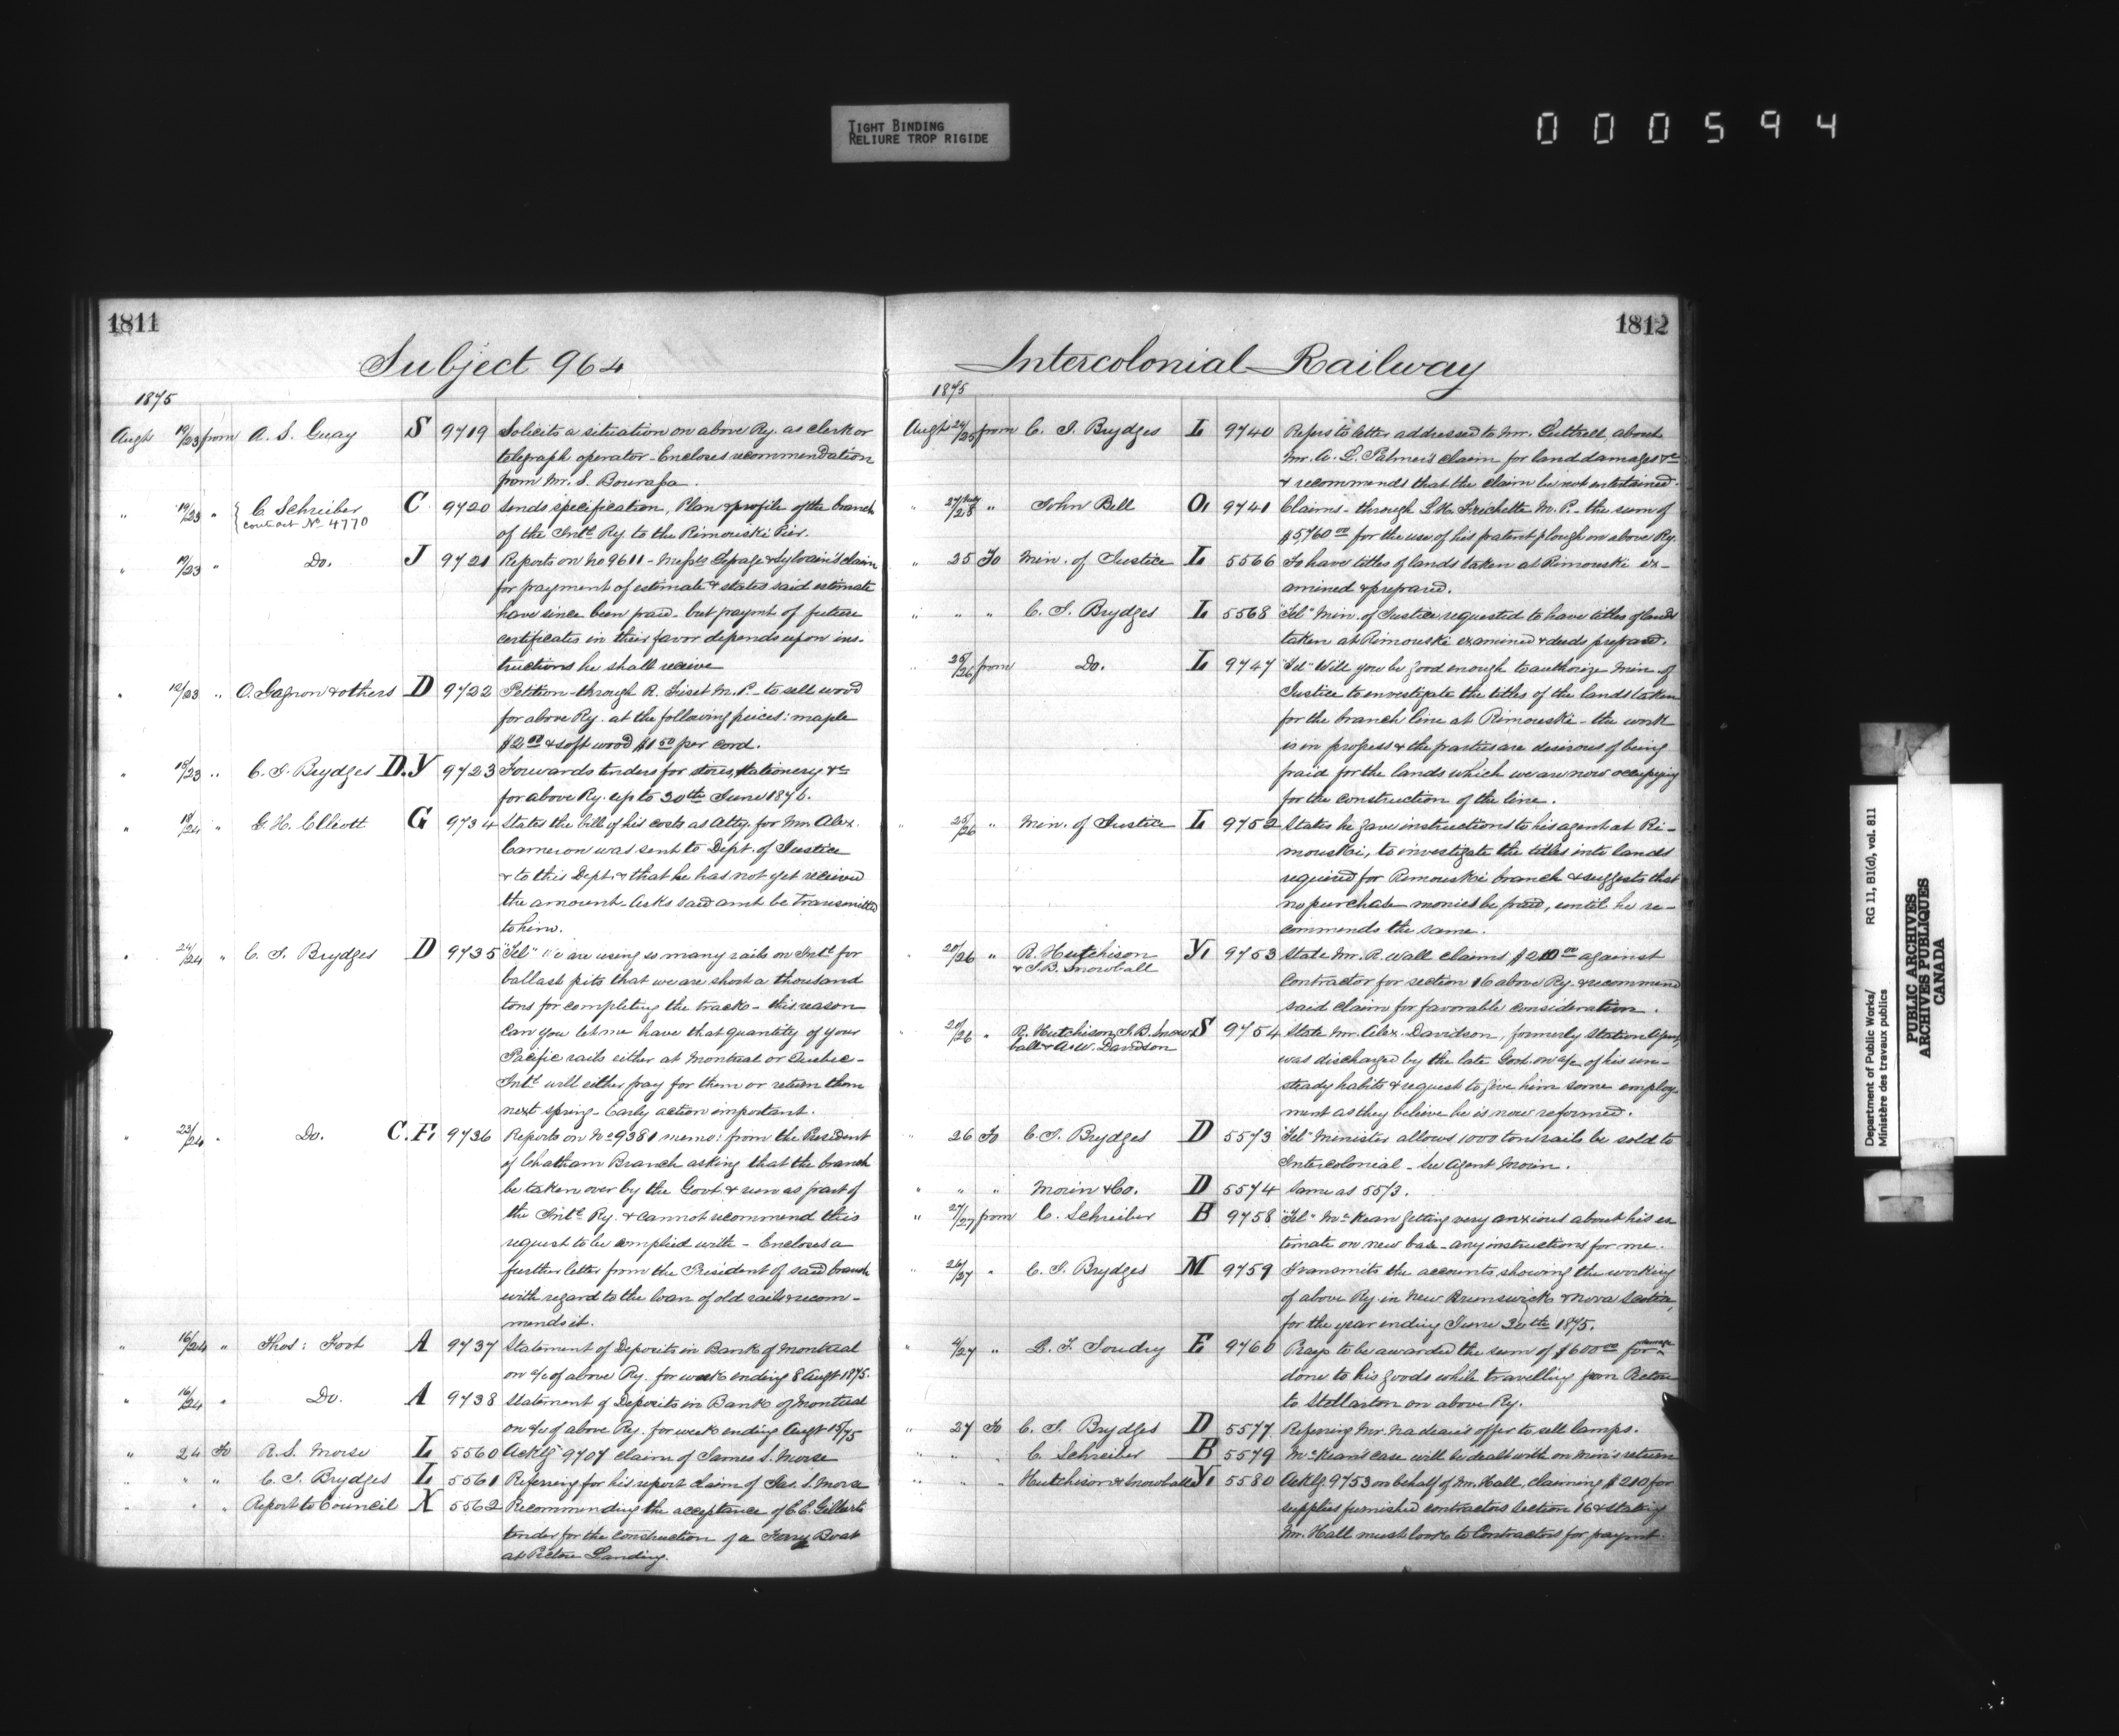 TIGHT BINDING
RELIURE TROP RIGIDE
000594
1811
Subject 964
1875
Augt 19/23 from A. S. Guay S 9719 Solicits a situation on above Ry. as clerk or
telegraph operator - Encloses recommendation
from Mr. S. Bourassa.
" 19/23 " C. Schreiber C 9720 Sends specification, Plan & profile of the branch
contract No 4770
of the Intl Ry. to the Rimouski Pier.
" 19/23 " Do. J 9721 Reports on No 9611 - Messrs Lepage & Sylvain's claim
for payment of estimate & states said estimate
have since been paid - but paymt of future
certificates in their favor depends upon ins-
tructions he shall receive
" 12/23 " O. Gagnon & others D 9722 Petition - through R. Fiset M.P. - to sell wood
for above Ry. at the following prices: maple
$2.00 & soft wood $1.50 per cord.
" 18/23 " C. J. Brydges D.Y 9723 Forwards tenders for stores, stationery &c
for above Ry. up to 30th June 1876.
" 18/24 " G. H. G 9734 States the bill of his costs as Atty. for Mr. Alex.
Cameron was sent to Dept. of Justice
& to this Dept. & that he has not yet received
the amount. Asks said amt be transmitted
to him.
" 24/24 " C. J. Brydges D 9735 "Tel" We are using so many rails on Intl for
ballast pits that we are short a thousand
tons for completing the track - this reason
can you let me have that quantity of your
Pacific rails either at Montreal or Quebec -
Intl will either pay for them or return them
next spring - Early action important.
" 23/24 " Do. C.F. 9736 Reports on No 9381 memo: from the President
of Chatham Branch asking that the branch
be taken over by the Govt. & run as part of
the Intl Ry. & cannot recommend this
request to be complied with - Encloses a
further letter from the President of said branch
with regard to the loan of old rails & recom-
mends it.
" 16/24 " Thos: Foot A 9737 Statement of Deposits in Bank of Montreal
on a/c of above Ry. for week ending 8 Augt 1875.
" 16/24 " Do. A 9738 Statement of Deposits in Bank of Montreal
on a/c of above Ry. for week ending Augt 15/75
" 24 To R. S. Morse L 5560 Ackg 9707 claim of James S. Morse
" " " C. J. Brydges L 5561 Referring for his report claim of Jas. S. Morse
" " " Report to Council X 5562 Recommending the acceptance of C.C. Gilbert's
tender for the construction of a Ferry Boat
at Pictou Landing.
1812
Intercolonial Railway
1875
Augt 24/25 from C. J. Brydges L 9740 Refers to letter addressed to Mr. Luttrell, about
Mr. A. L. Palmer's claim for land damages &c
& recommends that the claim be not entertained.
" " John Bell O. 9741 Claims - through L. H. Frechette M.P. - the sum of
$5,760.00 for the use of his patent plough on above Ry.
" 25 To Min. of Justice L 5566 To have titles of lands taken at Rimouski ex-
amined & prepared.
" " " C. J. Brydges L 5568 "Tel" Min. of Justice requested to have titles of lands
taken at Rimouski examined & deeds prepared.
" 25/26 from Do. L 9747 "Tel" Will you be good enough to authorize Min of
Justice to investigate the titles of the lands taken
for the branch line at Rimouski - the work
is in progress & the parties are desirous of being
paid for the lands which we are now occupying
for the construction of the line.
" 25/26 " Min. of Justice L 9752 States he gave instructions to his agent at Ri-
mouski, to investigate the titles into lands
required for Rimouski branch & suggests that
no purchase monies be paid, until he re-
commends the same.
" 20/26 " R. Hutchison Y. 9753 State Mr. R. Wall claims $210.00 against
& J.B. Snowball
contractor for section 16 above Ry. & recommend
said claim for favorable consideration.
" 20/26 " R. Hutchison, J.B. Snow- S 9754 State Mr. Alex. Davidson, formerly Station Agent,
ball & A.W. Davidson
was discharged by the late Govt. on a/c of his un-
steady habits & request to give him some employ-
ment as they believe he is now reformed.
" 26 To C. J. Brydges D 5573 "Tel" Minister allows 1000 tons rails be sold to
Intercolonial - See Agent Morin.
" " " Morin & Co. D 5574 Same as 5573.
" 27/27 from C. Schreiber B 9758 "Tel" McKean getting very anxious about his es
timate on new base - any instructions for me.
" 26/27 " C. J. Brydges M 9759 Transmits the accounts showing the working
of above Ry. in New Brunswick & Nova Scotia,
for the year ending June 30th 1875.
" 4/27 " E 9760 Prays to be awarded the sum of $600.00 for damage
done to his goods while travelling from Pictou
to Stellarton on above Ry.
" 27 To C. J. Brydges D 5577 Referring Mr. Nadeau's offer to sell lamps.
" " " C. Schreiber B 5579 McKean's case will be dealt with on Min's return
" " " Hutchison & Snowball Y. 5580 Ackg 9753 on behalf of Mr. Hall, claiming $210 for
supplies furnished contractors section 16 & stating
Mr. Hall must look to Contractors for paymt.
Department of Public Works/
Ministère des travaux publics
RG 11, B1(d), vol. 811
PUBLIC ARCHIVES
ARCHIVES PUBLIQUES
CANADA